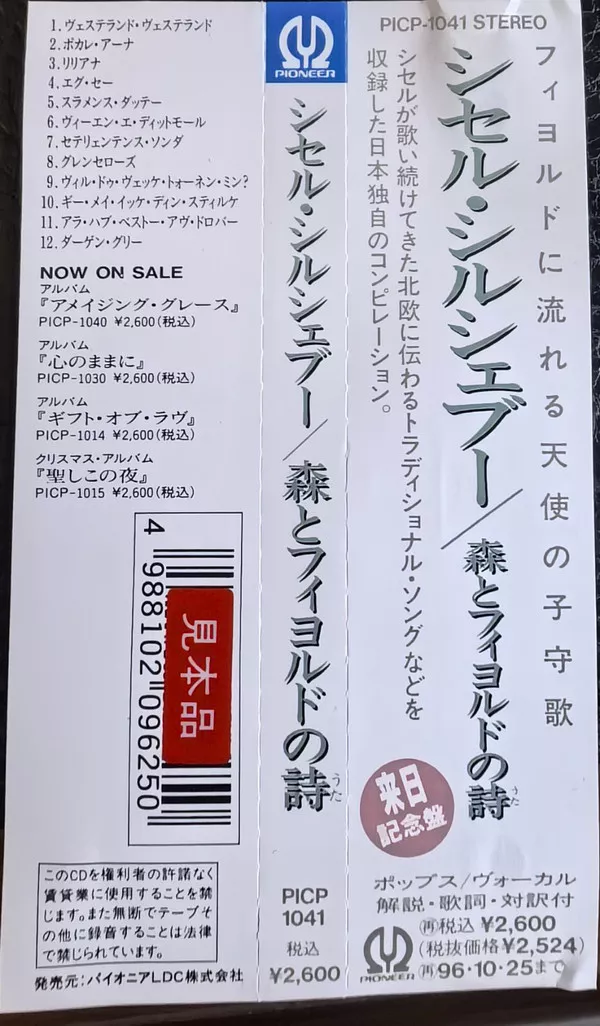 1. ヴェステランド・ヴェステランド
2. ポカレ・アーナ
3. リリアナ
4. エグ・セー
5. スラメンス・ダッテー
6. ヴィーエン・エ・ディットモール
7. セテリェンテンス・ソンダ
8. グレンセローズ
9. ヴィル・ドゥ・ヴェッケ・トォーネン・ミン?
10. ギー・メイ・イッケ・ディン・スティルケ
11. アラ・ハブ・ベストー・アヴ・ドロバー
12. ダーゲン・グリー
NOW ON SALE
アルバム
『アメイジング・グレース』
PICP-1040 ¥2,600(税込)
アルバム
『心のままに』
PICP-1030 ¥2,600(税込)
アルバム
『ギフト・オブ・ラヴ』
PICP-1014 ¥2,600(税込)
クリスマス・アルバム
『聖しこの夜』
PICP-1015 ¥2,600(税込)
4 988102 096250
見本品
このCDを権利者の許諾なく
賃貸業に使用することを禁
じます。また無断でテープそ
の他に録音することは法律
で禁じられています。
発売元:パイオニアLDC株式会社
PIONEER
シセル・シルシェブー/森とフィヨルドの詩
うた
PICP
1041
税込
¥2,600
PICP-1041 STEREO
フィヨルドに流れる天使の子守歌
シセル・シルシェブー/森とフィヨルドの詩
うた
シセルが歌い続けてきた北欧に伝わるトラディショナル・ソングなどを
収録した日本独自のコンピレーション。
来日
記念盤
ポップス/ヴォーカル
解説・歌詞・対訳付
(再)税込 ¥2,600
(税抜価格¥2,524)
(再)96・10・25まで
PIONEER